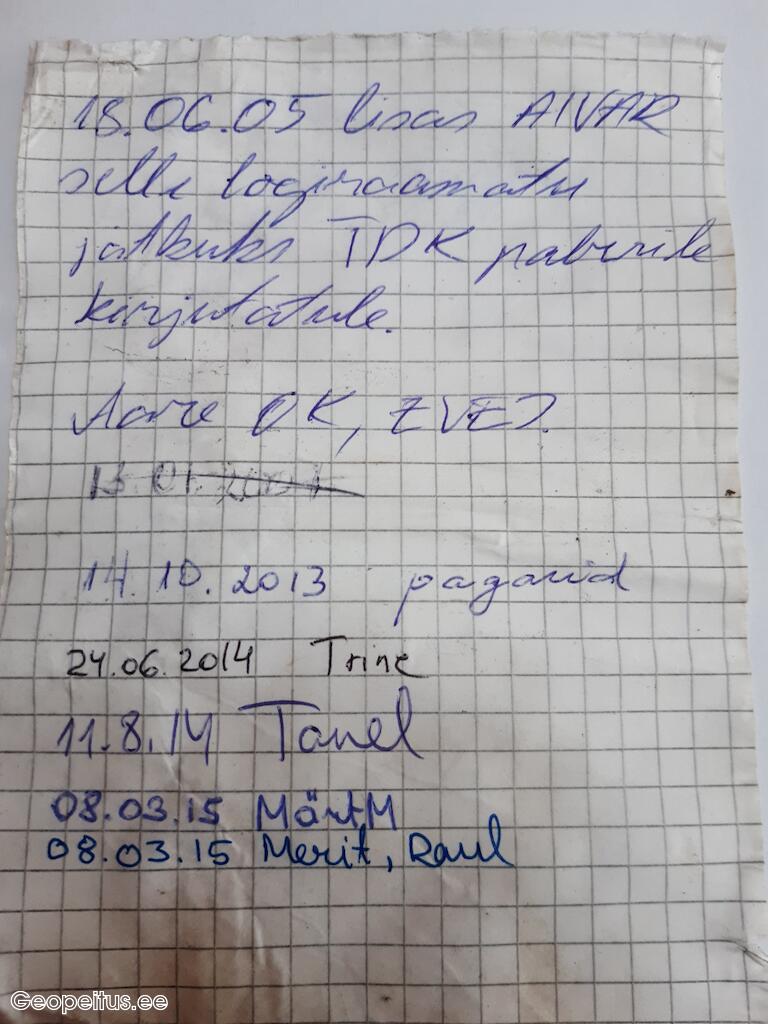 18.06.05 lisas AIVAR
selle logiraamatu
jätkuks TDK paberile
kirjutatule.
Aare OK, EVEJ.
14.10.2013 pagarid
24.06.2014 Trine
11.8.14 Tanel
08.03.15 MärtM
08.03.15 Merit, Raul
Geopeitus.ee